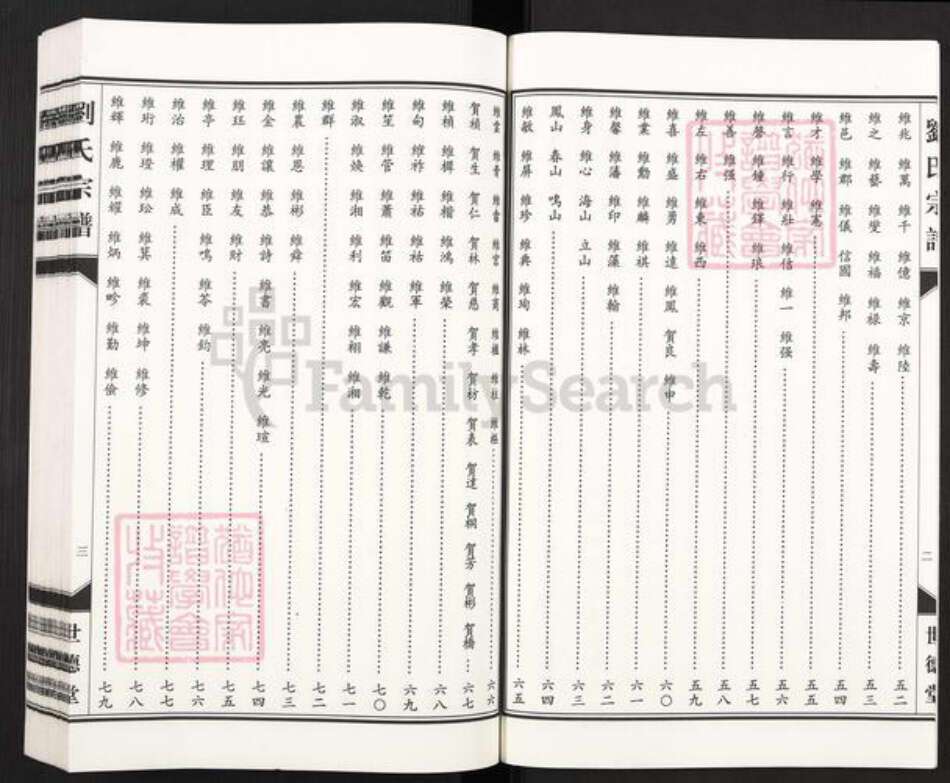 劉氏宗譜
二
世德堂
維兆 維萬 維千 維億 維京 維陸 五二
維之 維藝 維燮 維福 維祿 維壽 五三
維邑 維郡 維儀 信國 維邦 五四
維才 維學 維憲 五五
維言 維行 維壯 維信 維一 維强 五六
維磬 維鐘 維鐸 維琅 五七
維善 維强 五八
維左 維右 維東 維西 五九
維喜 維盛 維勇 維遠 維鳳 賀良 維申 六〇
維業 維勳 維麟 維祺 六一
維馨 維藩 維印 維藻 維翰 六二
維身 維心 海山 立山 六三
鳳山 春山 鳴山 六四
維敏 維屏 維珍 維典 維珣 維林 六五
六六
賀楨 賀生 賀仁 賀林 賀慈 賀孝 賀材 賀表 賀達 賀桐 賀芳 賀彬 賀橋 六七
維楨 維樨 維楷 維鴻 維榮 六八
維甸 維祚 維祜 維祜 維軍 六九
維笙 維管 維簫 維笛 維觀 維謙 維乾 七〇
維淑 維煥 維湘 維利 維宏 維栩 維湘 七一
維群 七二
維農 維恩 維彬 維舜 七三
維金 維讓 維恭 維詩 維書 維亮 維光 維瑄 七四
維玨 維朋 維友 維財 七五
維亭 維理 維臣 維鳴 維苓 維鈞 七六
維治 維權 維成 七七
維珩 維璒 維玜 維箕 維裘 維坤 維修 七八
維輝 維鹿 維耀 維炳 維畛 維勤 維儉 七九
劉氏宗譜
三
世德堂
FamilySearch